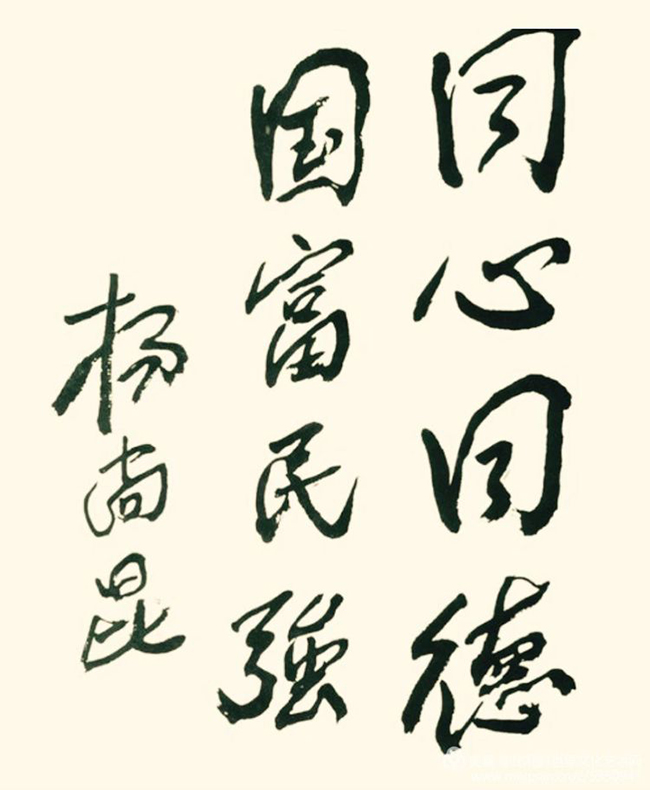 同心同德
国富民强
杨尚昆